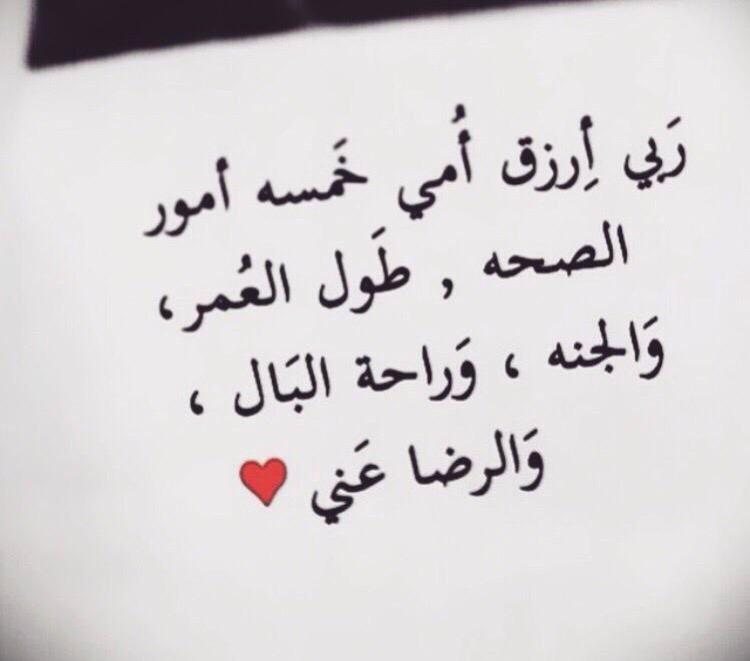 رَبي أِرزق أُمي خَمسه أمور
الصحه , طَول العُمر،
وَالجنه ، وَراحة البَال ،
وَالرضا عَني ♥